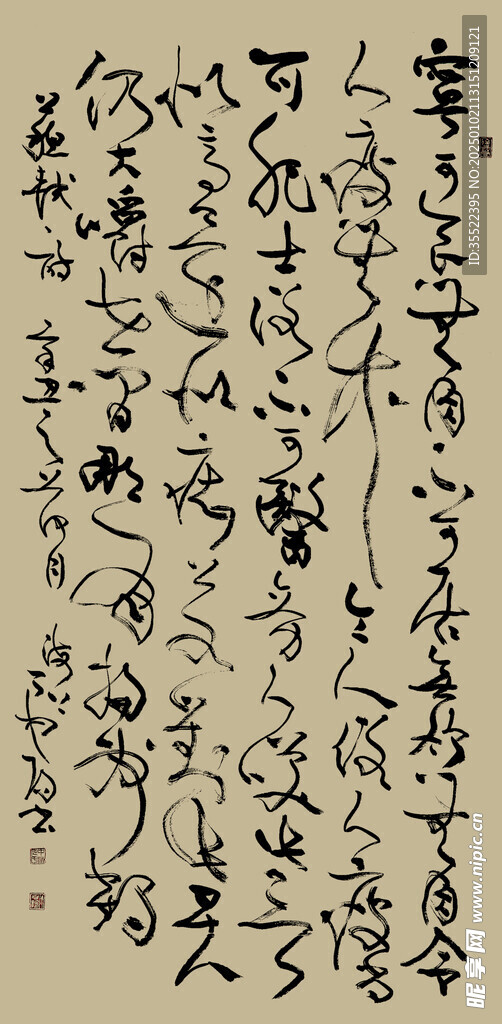 寧可食無肉不可居無竹無肉令
人瘦無竹令人俗人瘦尚
可肥士俗不可醫旁人笑此言
似高還似癡若對此君
仍大嚼世間那有揚州鶴
蘇軾詩 辛丑之 月 書
ID:35522395 NO:20250102113151209121
昵享网 www.nipic.cn